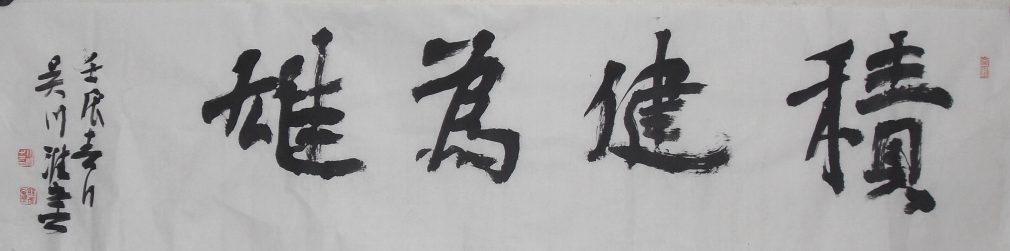 積健為雄
壬辰春月
吴川淮書